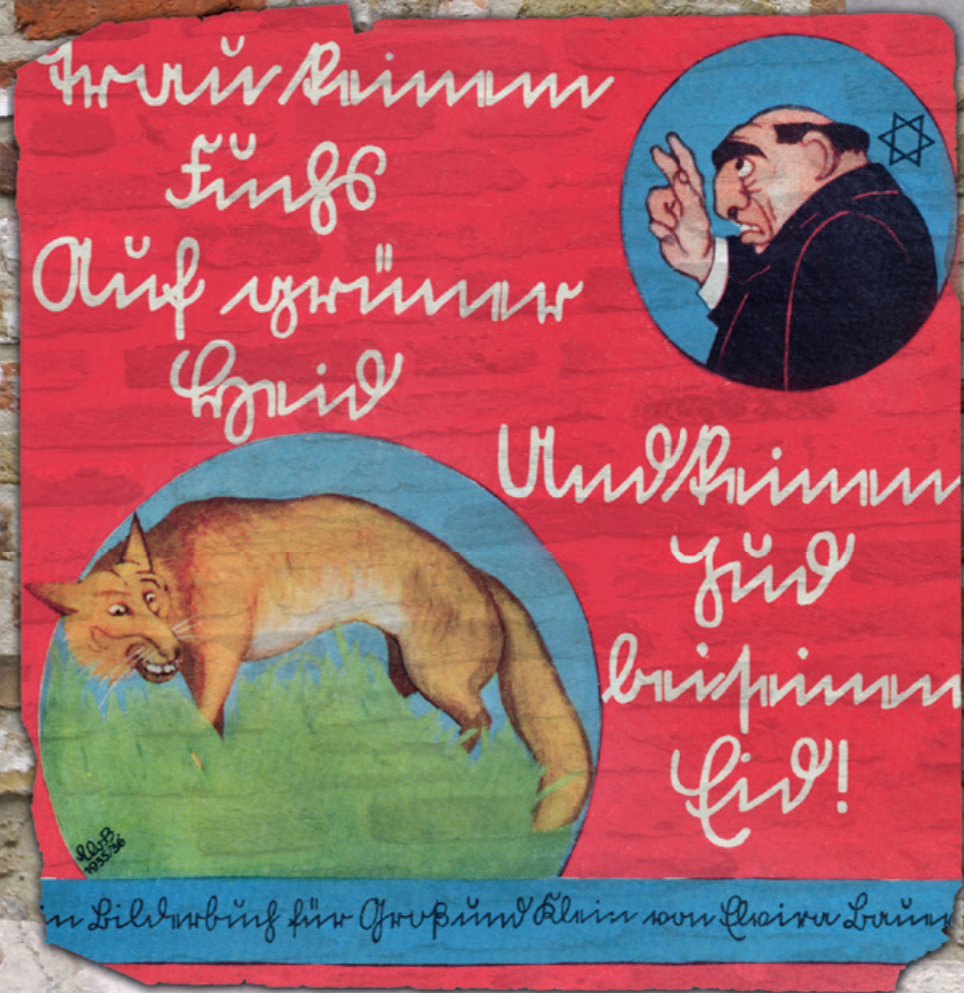 Trau keinem
Fuchs
Auf grüner
Heid
Und keinem
Jud
bei seinem
Eid!
1935/36
in Bilderbuch für Groß und Klein von Elvira Bauer